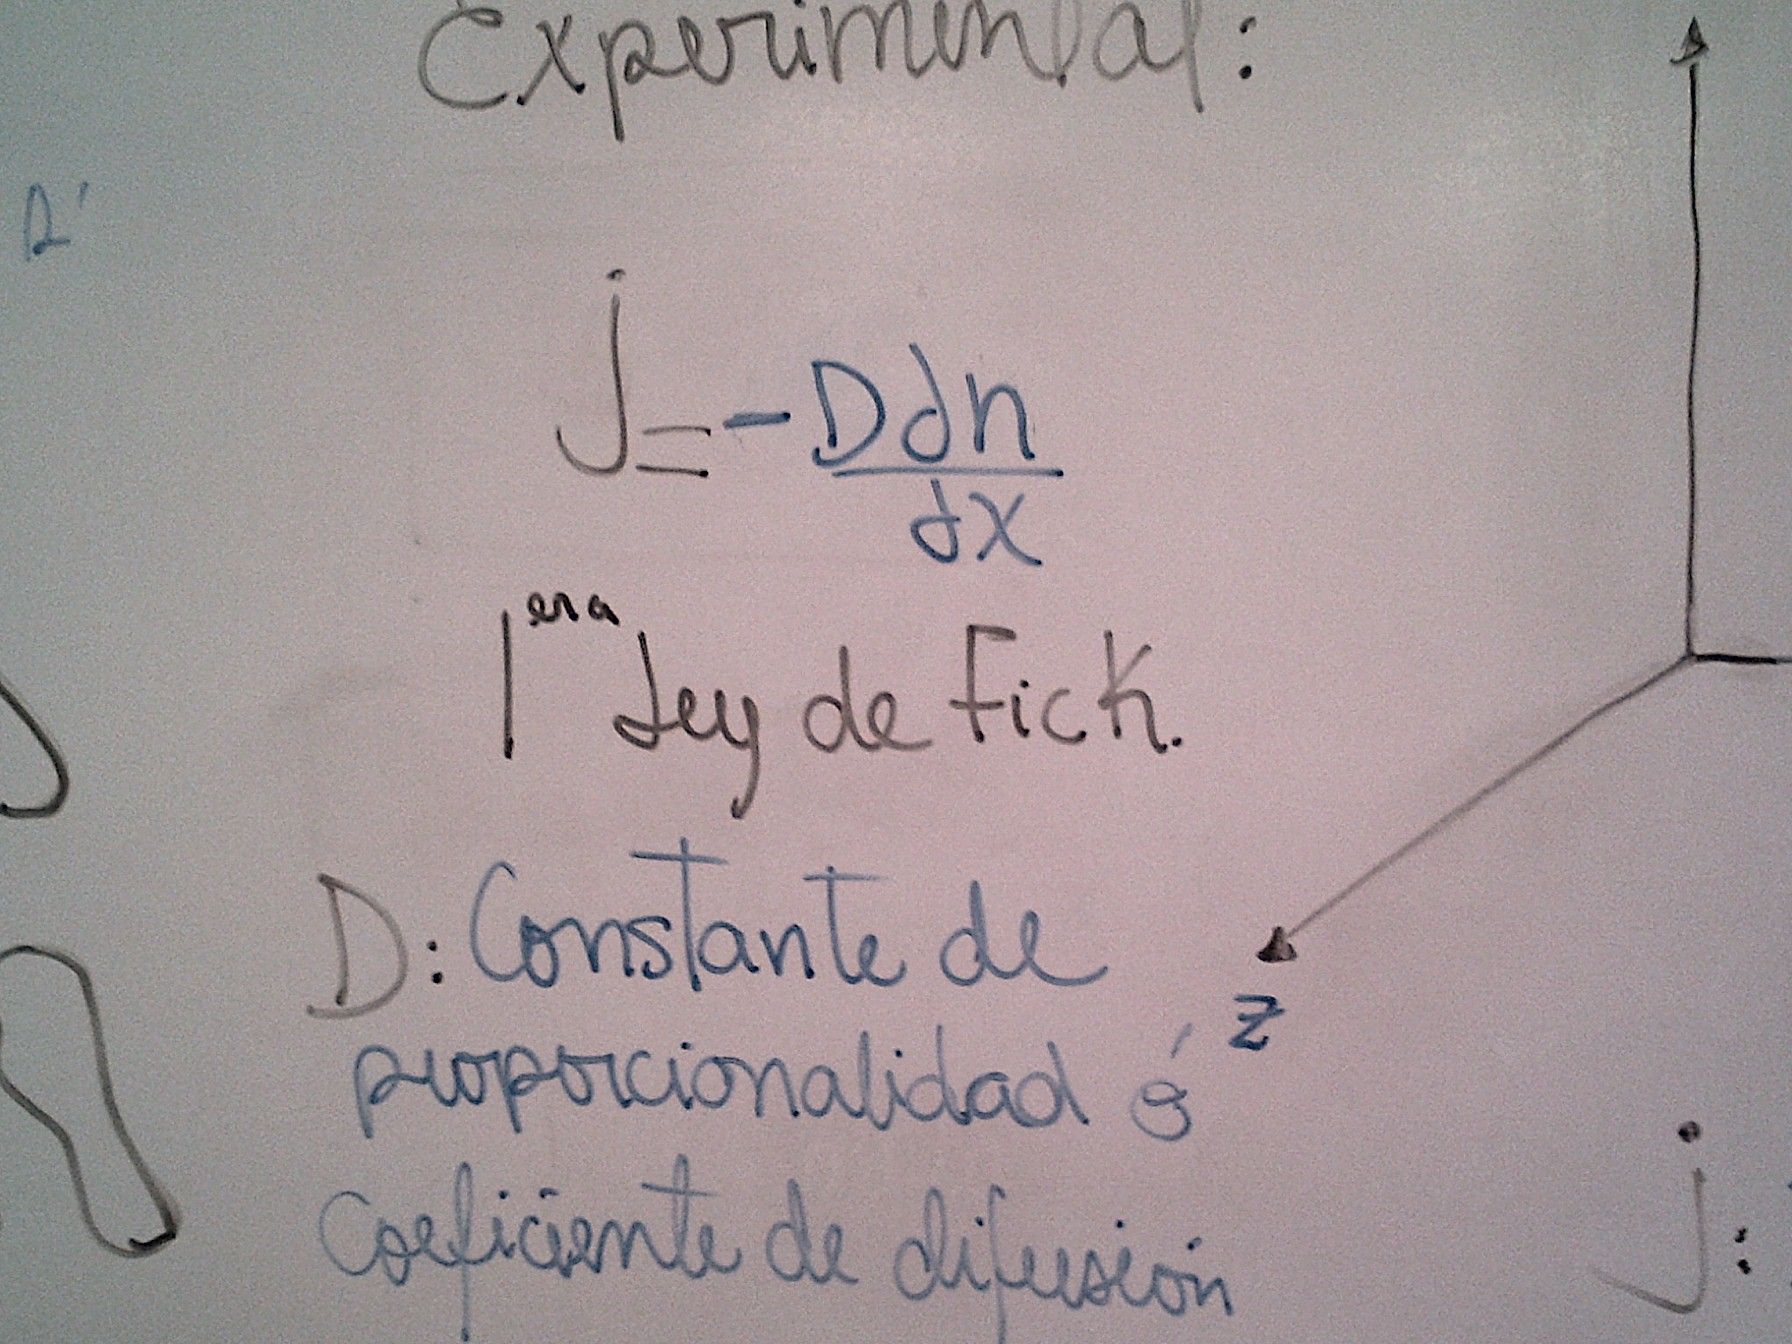 Experimental:
j = - D dn
dx
1era Ley de Fick.
D: Constante de
proporcionalidad ó
coeficiente de difusión
z
j: